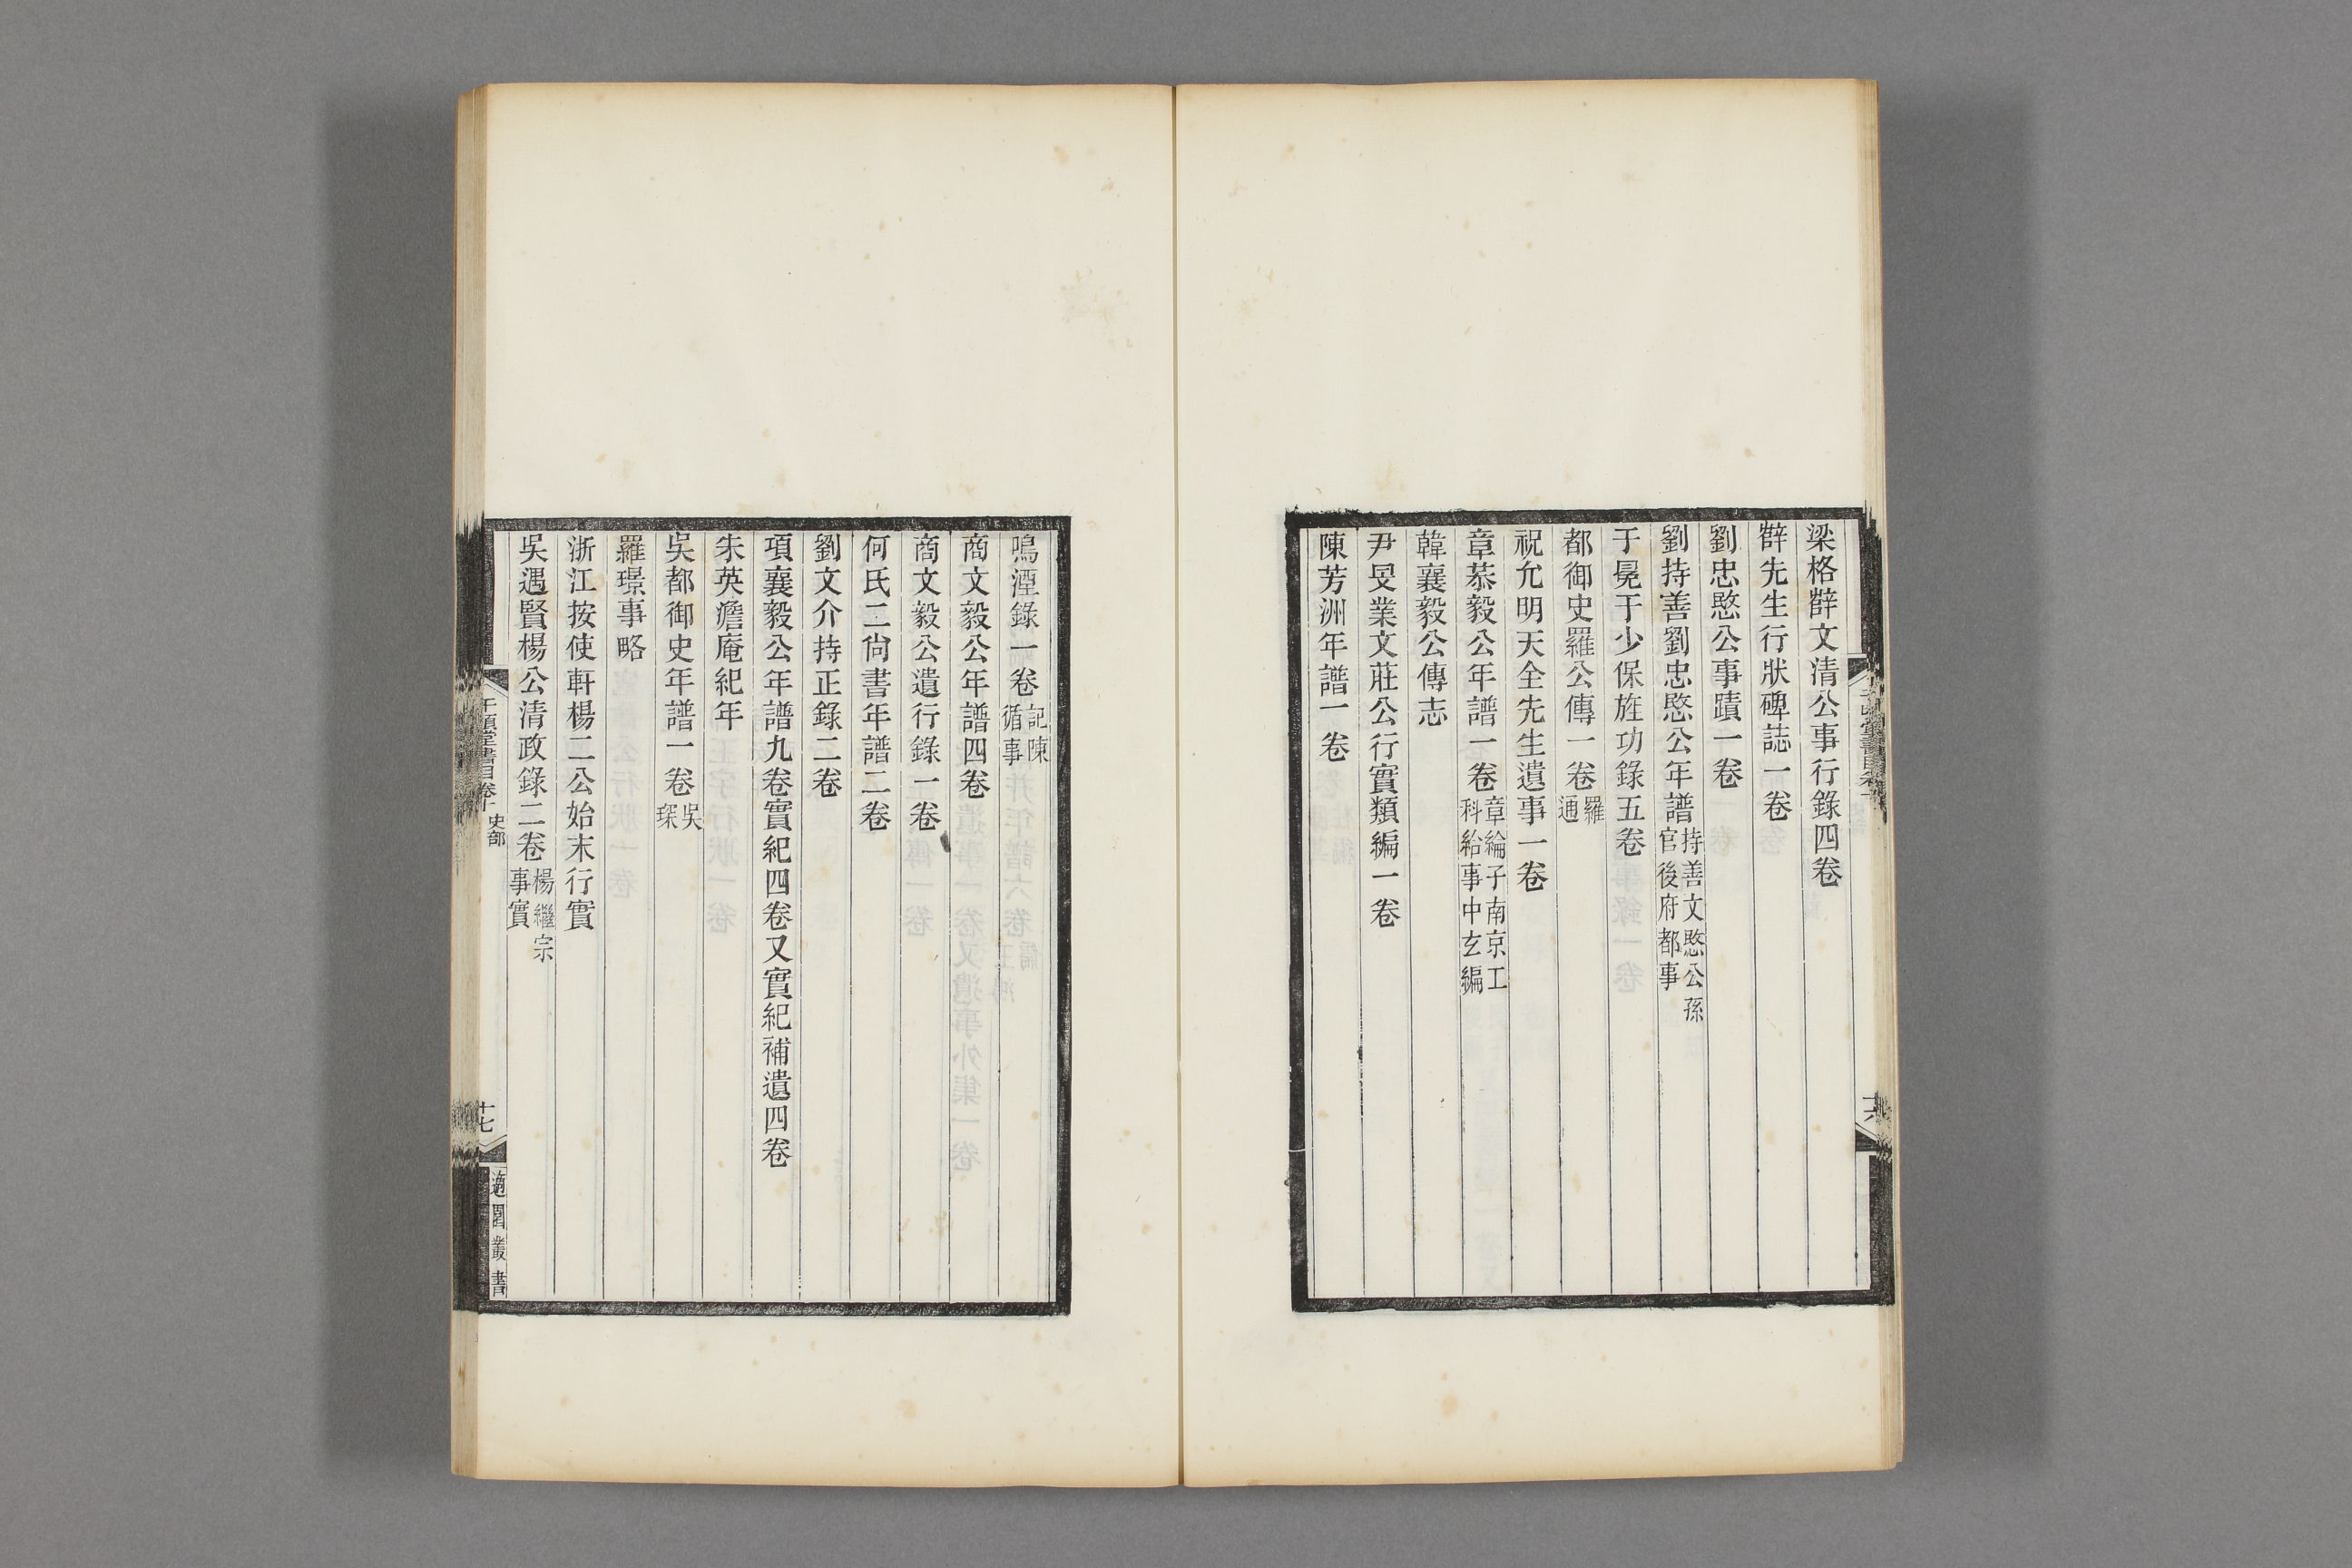 梁格薛文清公事行錄四卷
薛先生行狀碑誌一卷
劉忠愍公事蹟一卷
劉持善劉忠愍公年譜持善文愍公孫官後府都事
于冕于少保旌功錄五卷
都御史羅公傳一卷羅通
祝允明天全先生遺事一卷
章恭毅公年譜一卷章綸子南京工科給事中玄編
韓襄毅公傳志
尹旻業文莊公行實類編一卷
陳芳洲年譜一卷
鳴湮錄一卷記陳循事
商文毅公年譜四卷
商文毅公遺行錄一卷
何氏二尙書年譜二卷
劉文介持正錄二卷
項襄毅公年譜九卷實紀四卷又實紀補遺四卷
朱英澹庵紀年
吳都御史年譜一卷吳琛
羅璟事略
浙江按使軒楊二公始末行實
吳遇賢楊公淸政錄二卷楊繼宗事實
千頃堂書目卷十 史部
十七
適園叢書